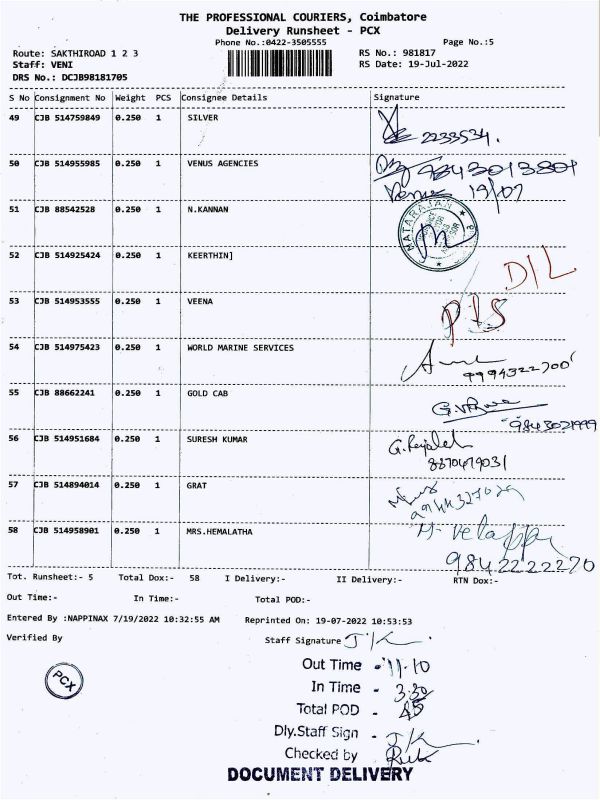 THE PROFESSIONAL COURIERS, Coimbatore
Delivery Runsheet - PCX
Phone No.:0422-3505555 Page No.:5
Route: SAKTHIROAD 1 2 3 RS No.: 981817
Staff: VENI RS Date: 19-Jul-2022
DRS No.: DCJB98181705
S No Consignment No Weight PCS Consignee Details Signature
49 CJB 514759849 0.250 1 SILVER
2233534.
50 CJB 514955985 0.250 1 VENUS AGENCIES 9843013801
Venus 19/07
51 CJB 88542528 0.250 1 N.KANNAN NATARAJAN
52 CJB 514925424 0.250 1 KEERTHIN] D/L
53 CJB 514953555 0.250 1 VEENA
54 CJB 514975423 0.250 1 WORLD MARINE SERVICES
9994322700
55 CJB 88662241 0.250 1 GOLD CAB
9843021999
56 CJB 514951684 0.250 1 SURESH KUMAR
8870479031
57 CJB 514894014 0.250 1 GRAT
58 CJB 514958901 0.250 1 MRS.HEMALATHA
9842222270
Tot. Runsheet:- 5 Total Dox:- 58 I Delivery:- II Delivery:- RTN Dox:-
Out Time:- In Time:- Total POD:-
Entered By :NAPPINAX 7/19/2022 10:32:55 AM Reprinted On: 19-07-2022 10:53:53
Verified By Staff Signature
PCX
Out Time - 11-10
In Time - 3.30
Total POD - 45
Dly.Staff Sign -
Checked by
DOCUMENT DELIVERY